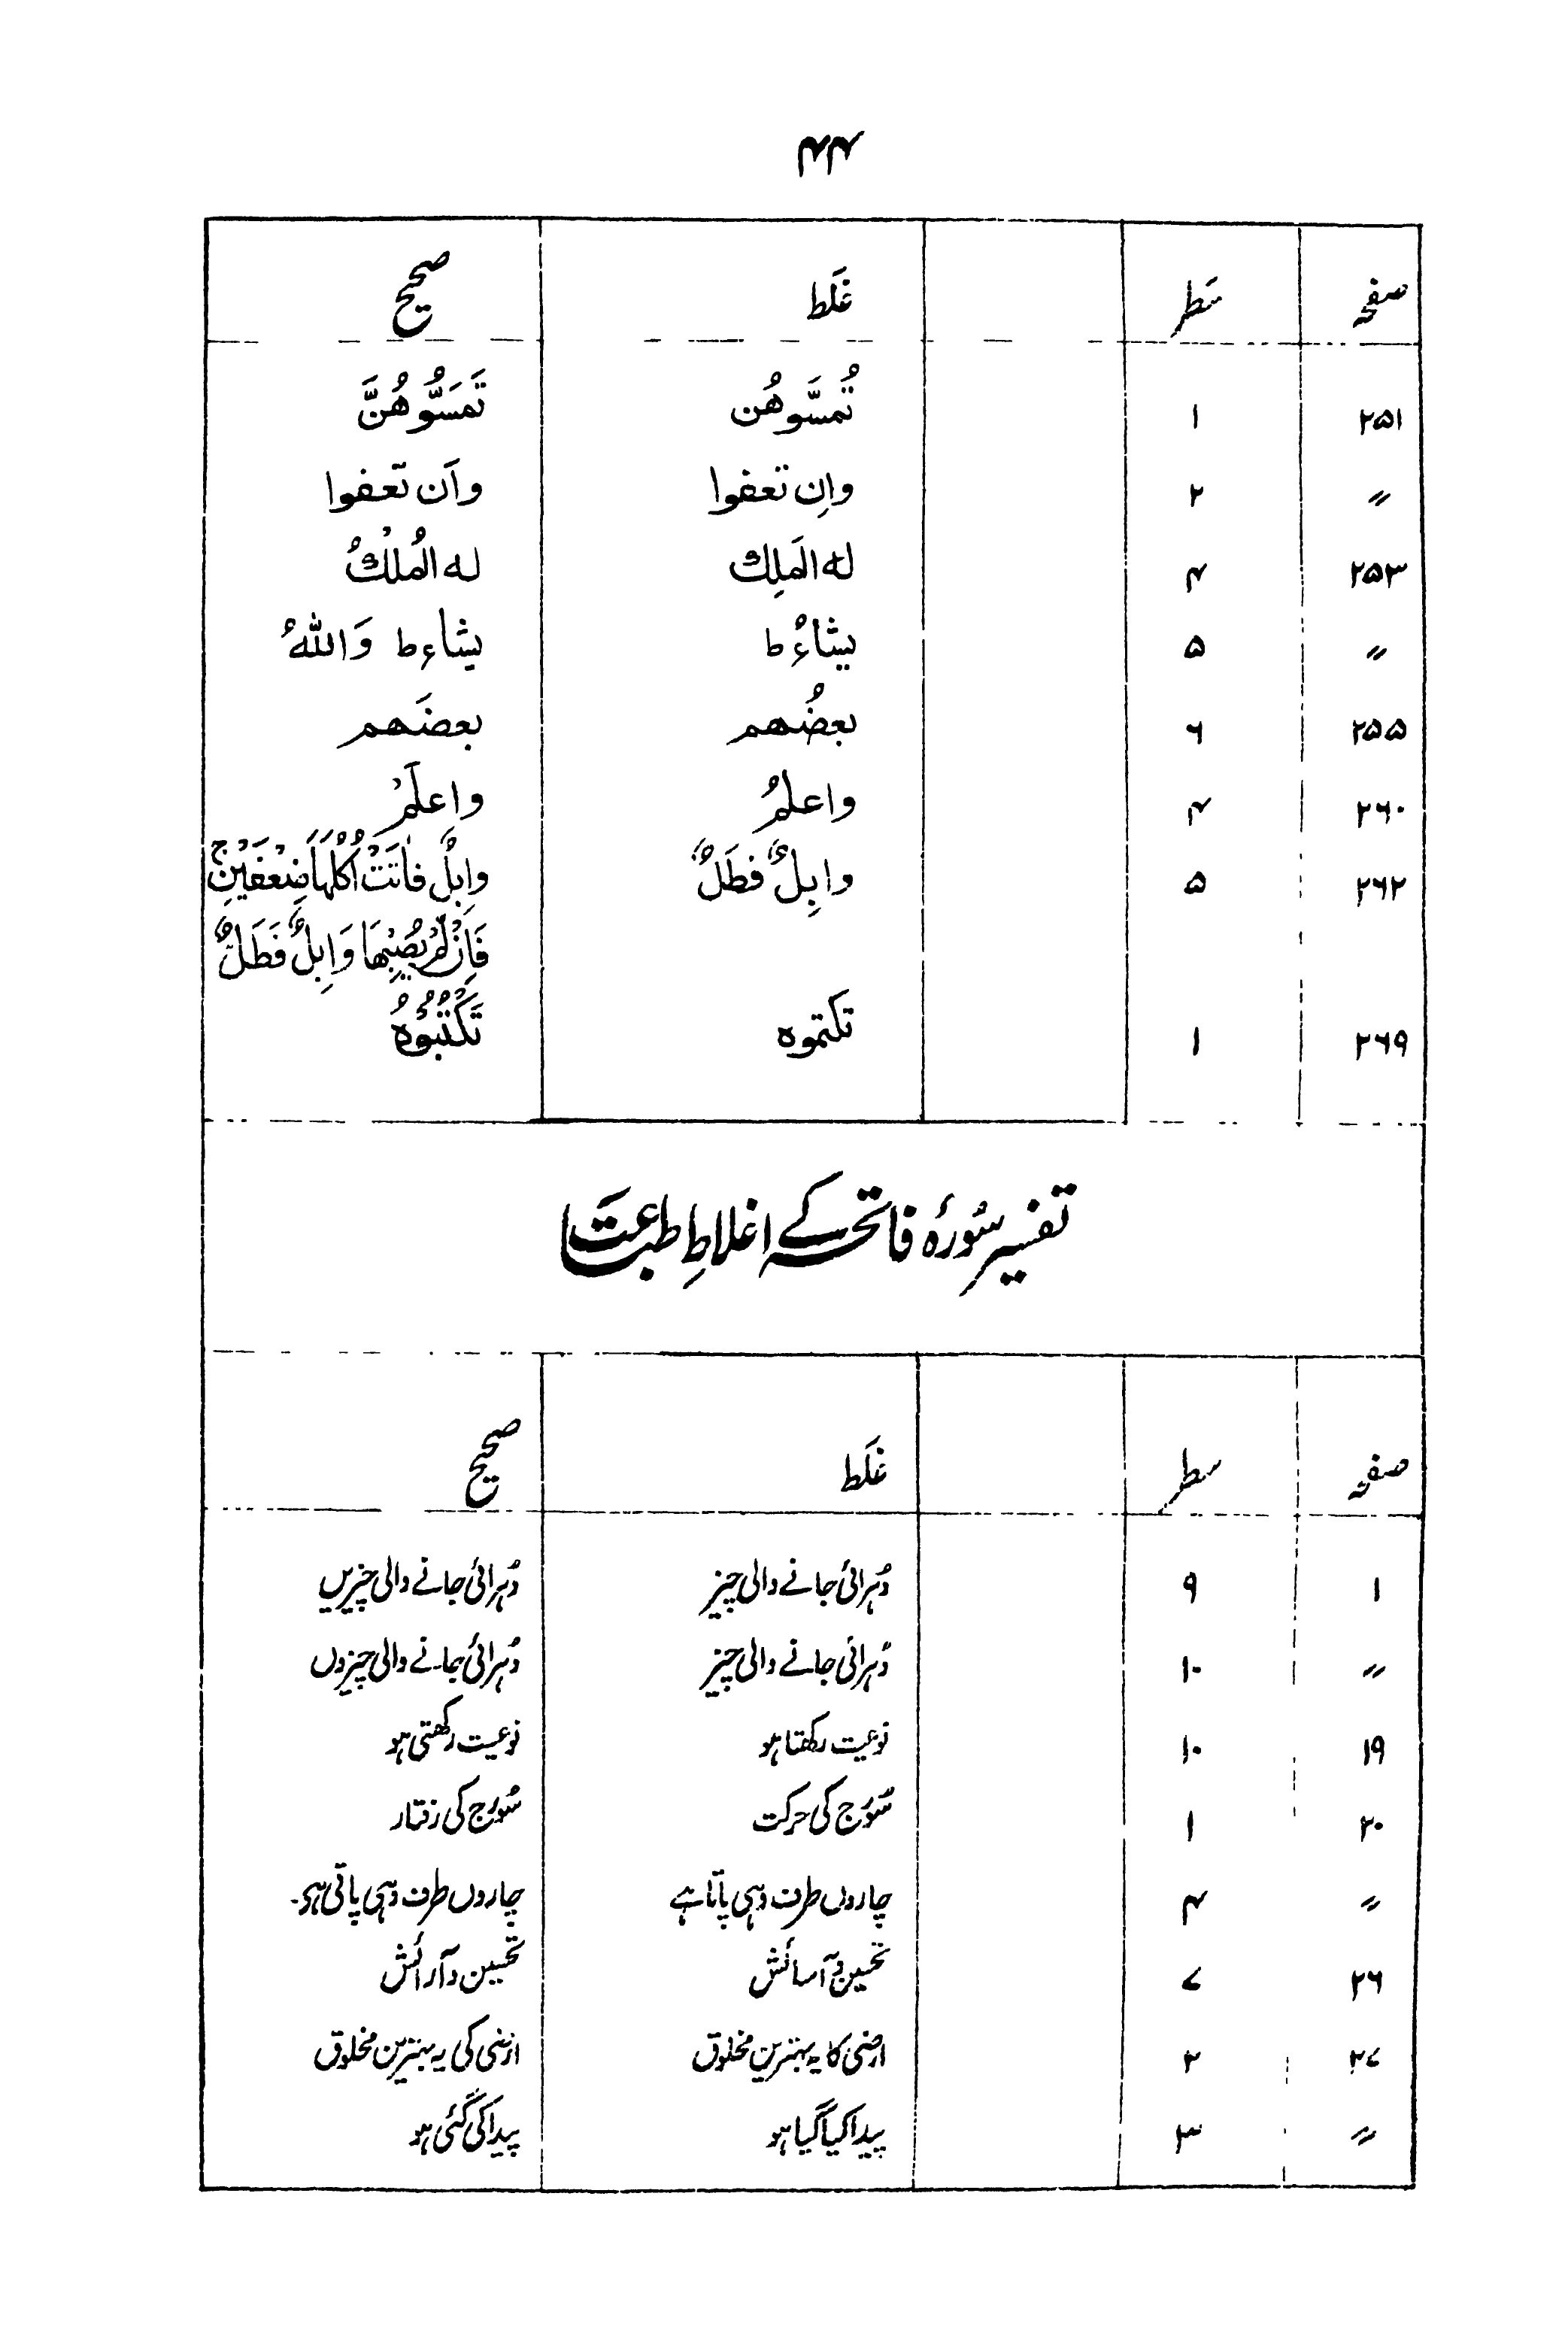 ۴۴
صفحہ سَطر غَلَط صحیح
۲۵۱ ۱ تُمسَّوهُن تَمَسُّوهُنَّ
〃 ۲ وانِ تعفوا واَن تَعفوا
۲۵۳ ۴ له المَلِك له المُلْكُ
〃 ۵ یشاءُ ط یشاء ط وَاللهُ
۲۵۵ ۶ بعضُهم بعضَهم
۲۶۰ ۴ واعلمُ واعلَمْ
۲۶۲ ۵ وابِلٌ فطَلٌ وابِلٌ فاٰتَتْ اُكُلَهَا ضِعْفَيْنِ ۚ
فَاِنْ لَّمْ يُصِبْهَا وَابِلٌ فَطَلٌّ
۲۶۹ ۱ تكتموه تَكْتُبُوْهُ
تفسیر سُورۂ فاتحہ کے اغلاطِ طباعَت
صفحہ سطر غَلَط صحیح
۱ ۹ دُہرائی جانے والی چیز دُہرائی جانے والی چیزیں
〃 ۱۰ دُہرائی جانے والی چیز دُہرائی جانے والی چیزوں
۱۹ ۱۰ نوعیت رکھتا ہو نوعیت رکھتی ہو
۲۰ ۱ سُورج کی حرکت سُورج کی رفتار
〃 ۴ چاروں طرف وہی پاتا ہے چاروں طرف وہی پاتی ہو۔
۲۶ ۷ تحسین و آسائش تحسین و آرائش
۲۷ ۲ ارضی کا یہ بہترین مخلوق ارضی کی یہ بہترین مخلوق
〃 ۳ پیدا کیا گیا ہو پیدا کی گئی ہو